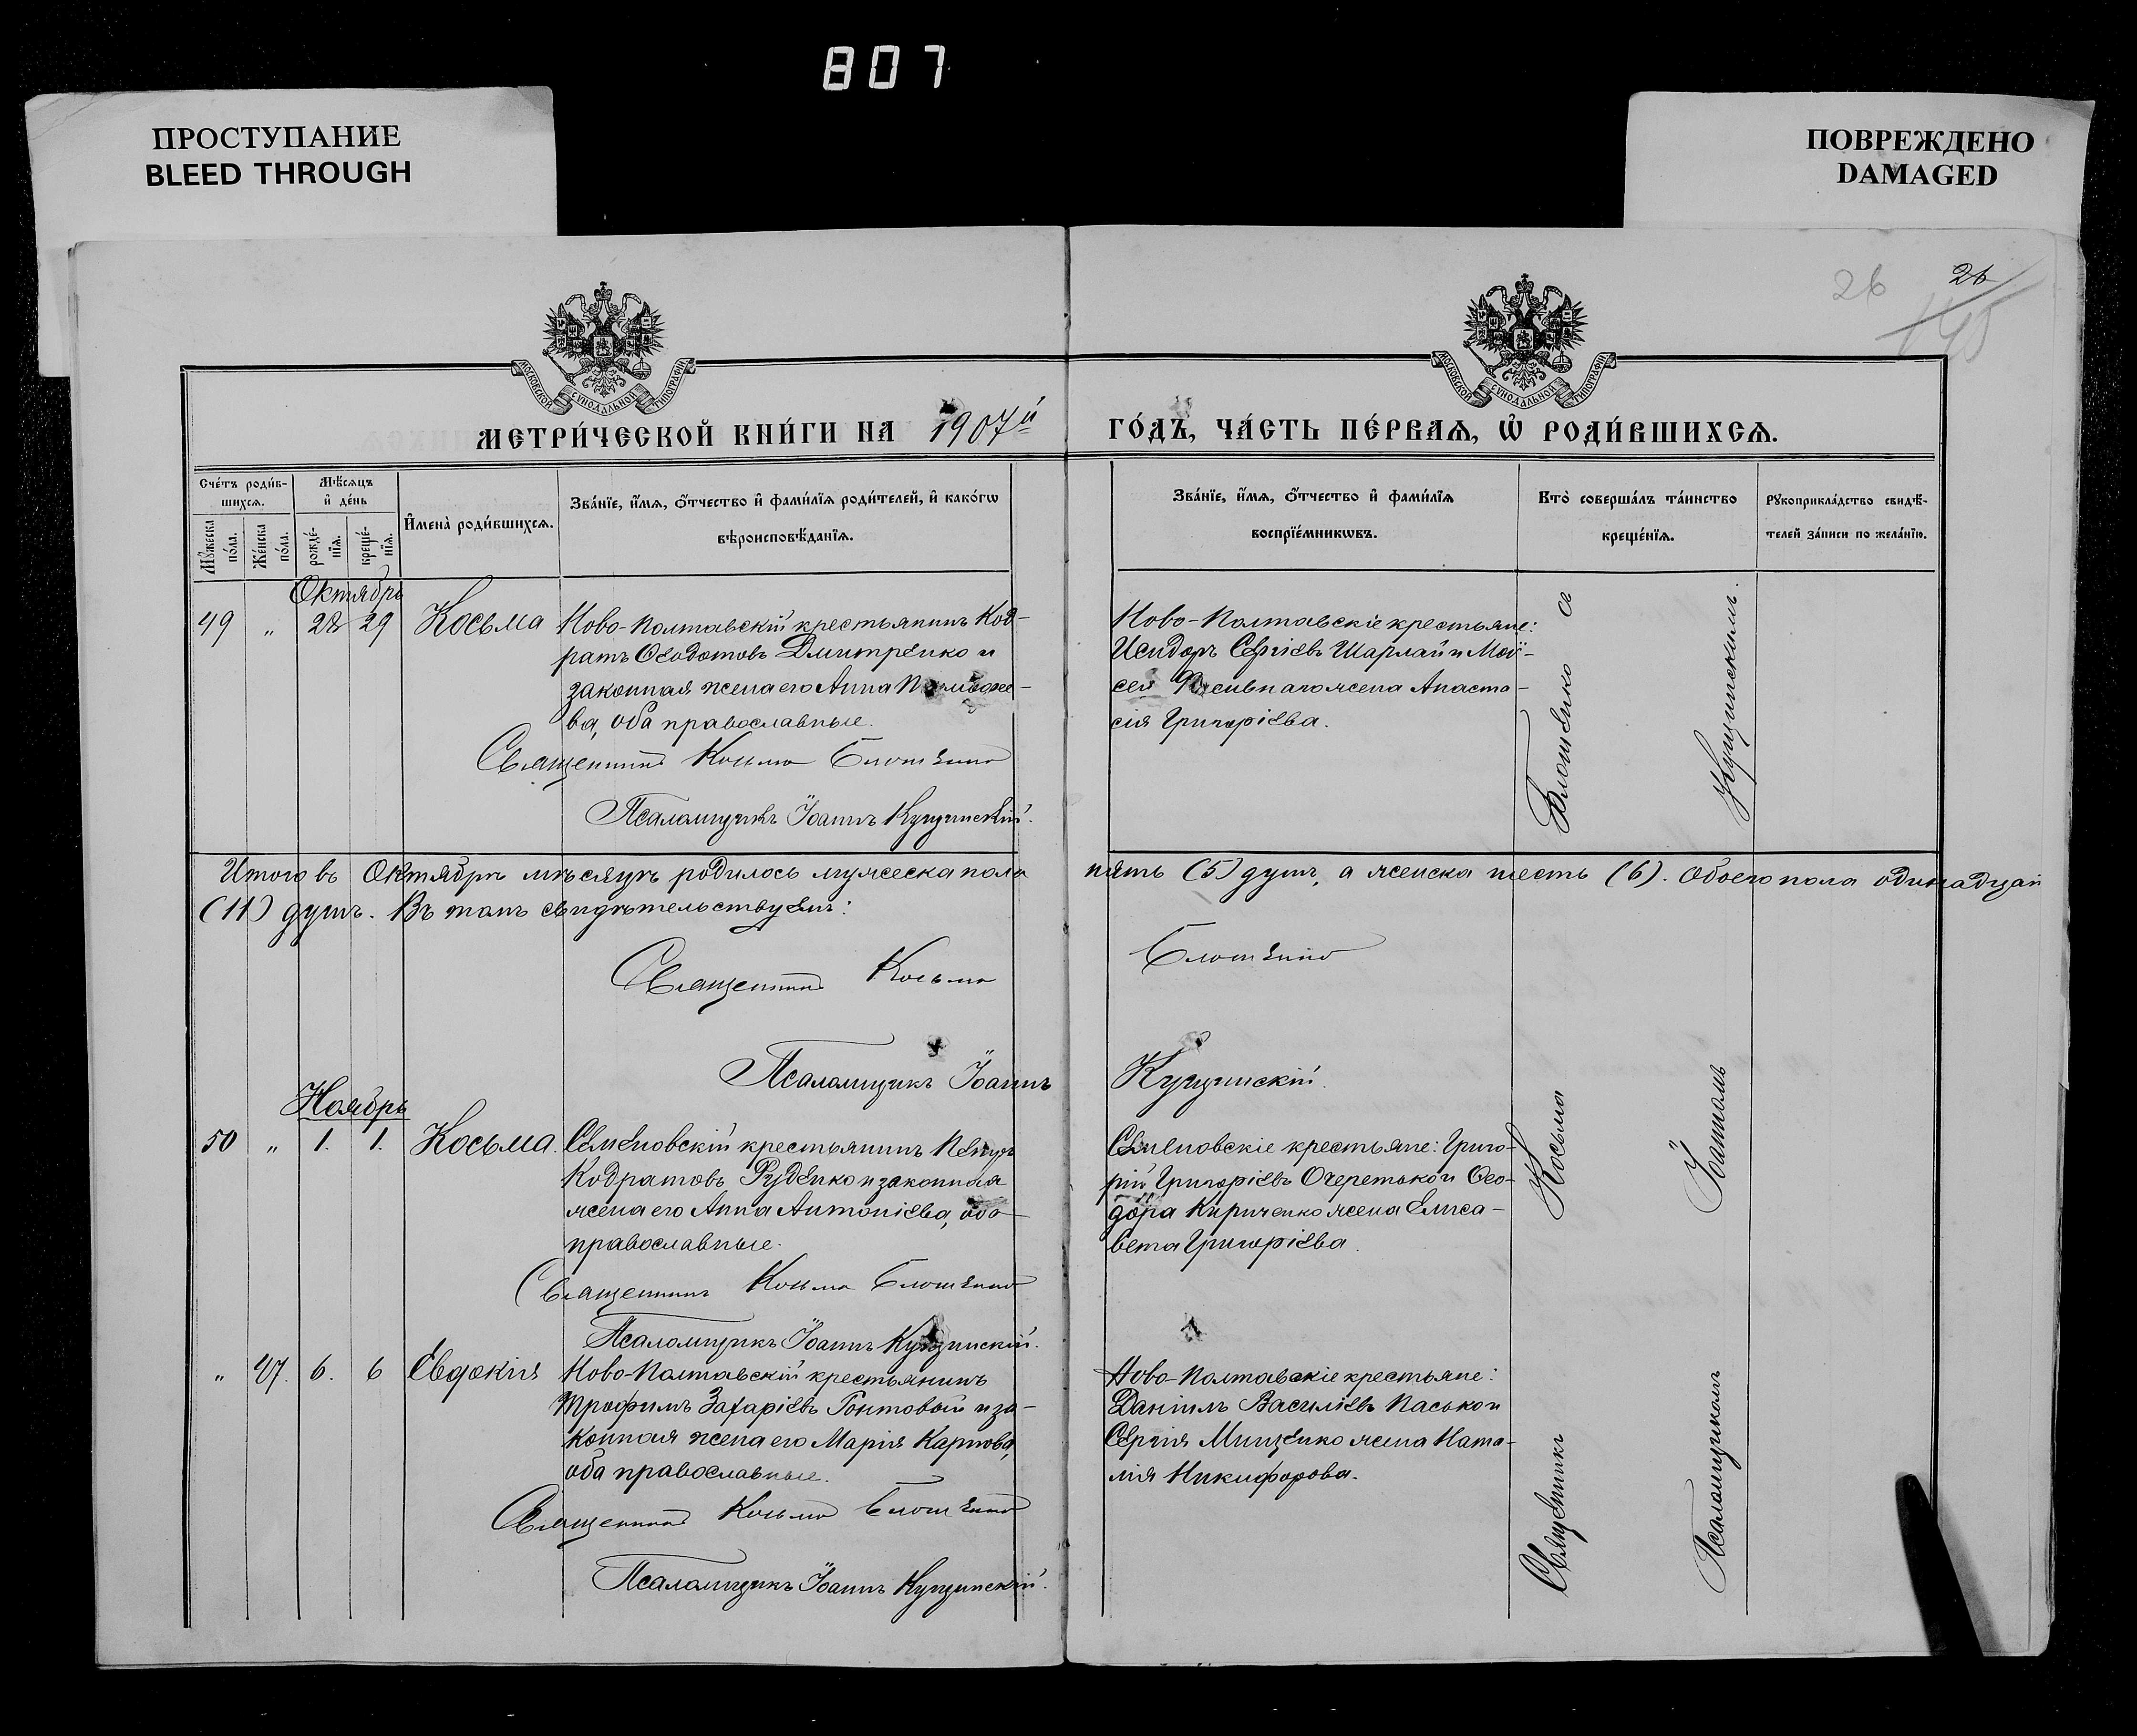 807
ПРОСТУПАНИЕ
BLEED THROUGH
ПОВРЕЖДЕНО
DAMAGED
26
26
МОСКОВСКОЙ СѴНОДАЛЬНОЙ ТИПОГРАФІИ
МОСКОВСКОЙ СѴНОДАЛЬНОЙ ТИПОГРАФІИ
МЕТРИ́ЧЕСКОЙ КНИ́ГИ НА 1907й
ГО́ДЪ, ЧА́СТЬ ПЕ́РВАѦ, Ѡ҆ РОДИ́ВШИХСѦ.
Сче́тъ роди́в-
шихсѧ.
Мѣ́сѧцъ
и҆ де́нь
Мꙋ́жеска
по́ла.
Же́нска
по́ла.
рожде́-
нїѧ.
креще́-
нїѧ.
И҆мена̀ роди́вшихсѧ.
Зва́нїе, и҆́мѧ, ѻ҆́тчество и҆ фами́лїѧ роди́телей, и҆ како́гѡ
вѣроисповѣ́данїѧ.
Зва́нїе, и҆́мѧ, ѻ҆́тчество и҆ фами́лїѧ
воспрїе́мникѡвъ.
Кто̀ соверша́лъ та́инство
креще́нїѧ.
Рꙋкоприкла́дство свидѣ́-
телей за́писи по жела́нїю.
Октябрь
49 " 28 29 Косьма
Ново-Полтавскій крестьянинъ Код-
ратъ Ѳеодотовъ Дмитренко и
законная жена его Анна
ва, оба православные.
Священникъ Косьма Блошенко
Псаломщикъ Іоаннъ Кущинскій.
Ново-Полтавскіе крестьяне:
Исидоръ Сергіевъ Шарлай и Мой-
сея жена Анаста-
сія Григоріева.
Итого въ Октябрѣ мѣсяцѣ родилось мужеска пола пять (5) душъ, а женска шесть (6). Обоего пола одинадцать
(11) душъ. Въ томъ свидѣтельствуемъ:
Священникъ Косьма Блошенко
Псаломщикъ Іоаннъ Кущинскій.
Ноябрь
50 " 1. 1. Косьма.
Семеновскій крестьянинъ Петръ
Кодратовъ Руденко и законная
жена его Анна Антоніева, оба
православные.
Священникъ Косьма Блошенко
Псаломщикъ Іоаннъ Кущинскій.
Семеновскіе крестьяне: Григо-
рій Григоріевъ Очеретько и Ѳео-
дора Кириченко жена Елиса-
вета Григоріева.
" 47. 6. 6 Евдокія
Ново-Полтавскій крестьянинъ
Трофимъ Захаріевъ Гонтовой и за-
конная жена его Марія Карпова,
оба православные.
Священникъ Косьма Блошенко
Псаломщикъ Іоаннъ Кущинскій.
Ново-Полтавскіе крестьяне:
Даніилъ Василіевъ Пасько и
Сергія Мищенко жена Ната-
лія Никифорова.
Священникъ Косьма Блошенко съ
Псаломщикомъ Іоанномъ Кущинскимъ.